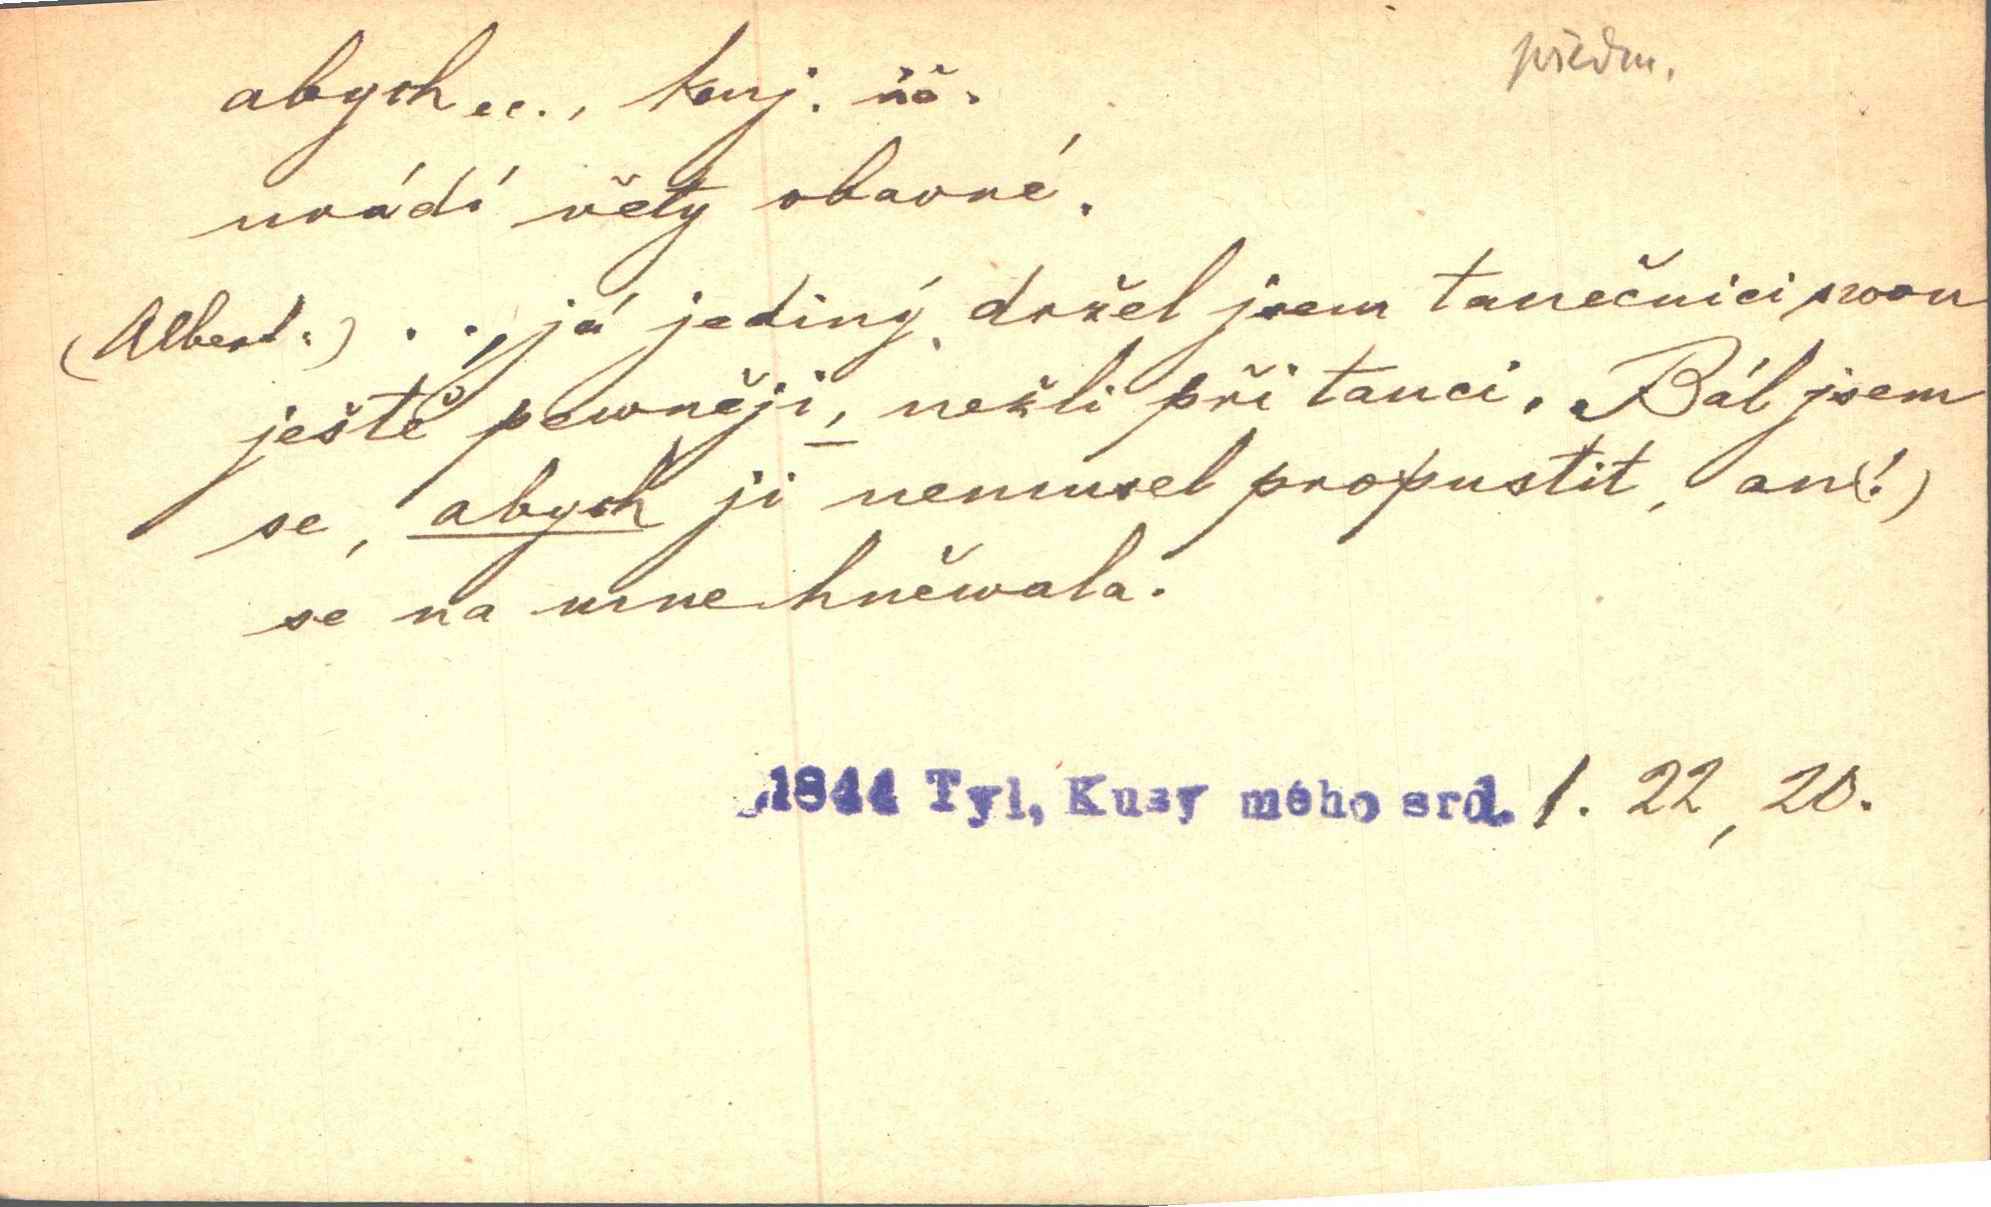 předm.
abych etc., konj. úč.
uvádí věty obavné.
(Albert:) . . , já jediný držel jsem tanečnici swou
ještě pewněji, nežli při tanci. Bál jsem
se, abych ji nemusel propustit, an(!)
se na mne hněwala.
1844 Tyl, Kusy mého srd. 1. 22, 20.